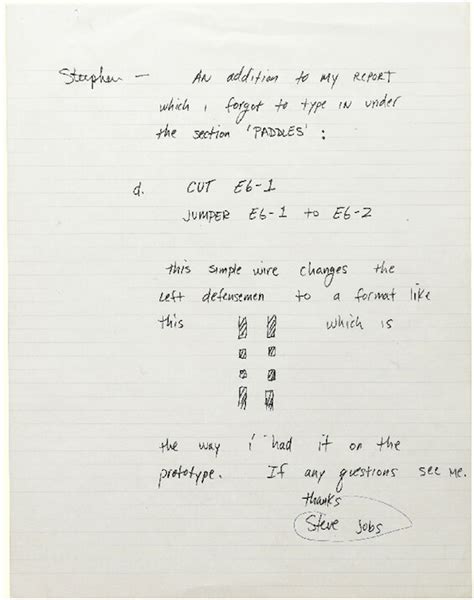 Stephen — AN addition to my REPORT
which i forgot to type in under
the section 'PADDLES' :
d. CUT E6-1
JUMPER E6-1 to E6-2
this simple wire changes the
left defensemen to a format like
this which is
the way i had it on the
prototype. If any questions see me.
thanks
Steve Jobs